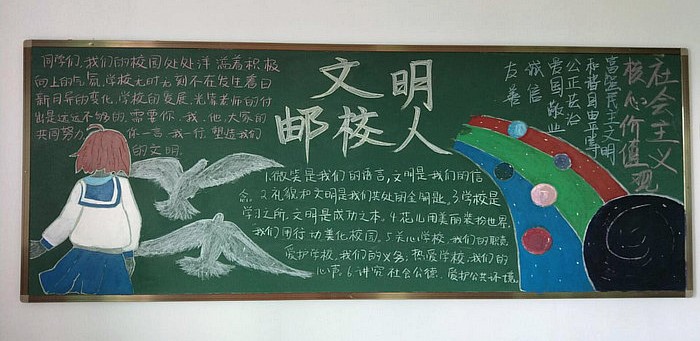 同学们,我们的校园处处洋溢着积极
向上的气氛,学校无时无刻不在发生着日
新月异的变化,学校的发展,光靠老师的付
出是远远不够的,需要你、我、他、大家的
共同努力 你一言,我一行,塑造我们
的文明。
文明
邮校人
1.微笑是我们的语言,文明是我们的信
念。2.礼貌和文明是我们共处的金钥匙。3.学校是
学习之所,文明是成功之本。4.花儿用美丽装扮世界,
我们用行动美化校园。5.关心学校,我们的职责
爱护学校,我们的义务,热爱学校,我们的
心声。6.讲究社会公德,爱护公共环境。
社会主义
核心价值观
富强民主文明
和谐自由平等
公正法治
爱国敬业
诚信
友善